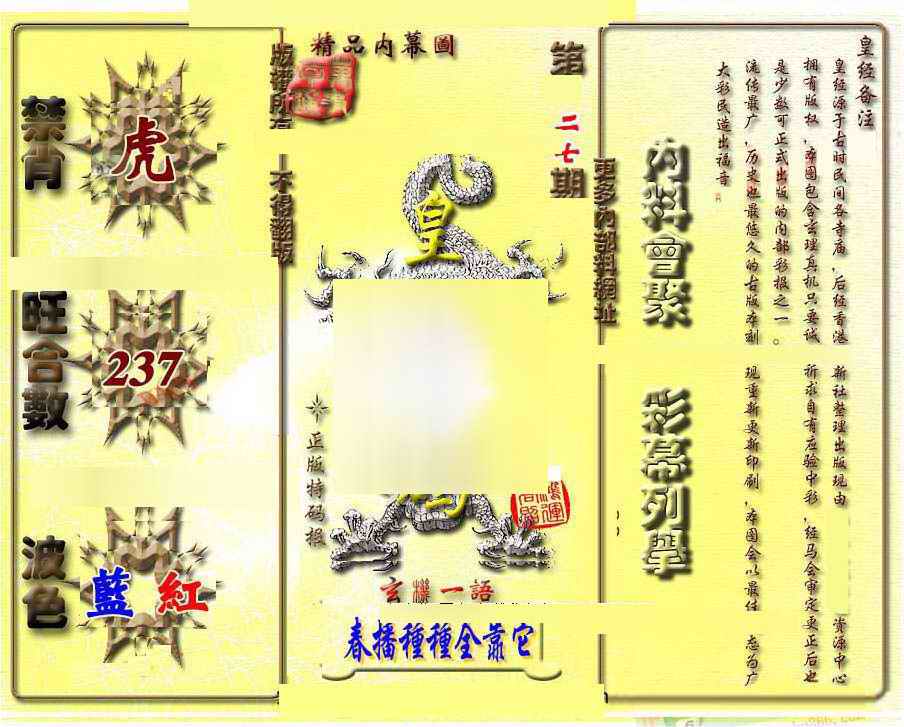 精品内幕圖
第
二七
期
版權所有
不得翻版
更多內部料網址
禁肖
虎
旺合數
237
波色
藍 紅
皇
正版特码報
玄機一語
春播種種全靠它
内料會聚
彩幕列舉
皇经备注
皇经源于古时民间各寺庙，后经香港新社整理出版现由
资源中心
拥有版权，本图包含玄理真机只要诚祈求自有应验中彩，经马会审定更正后也
是少数可正式出版的内部彩报之一。
流传最广，历史也最悠久的古版本刻现重新更新印刷，本图会以最佳
态为广
大彩民造出福音